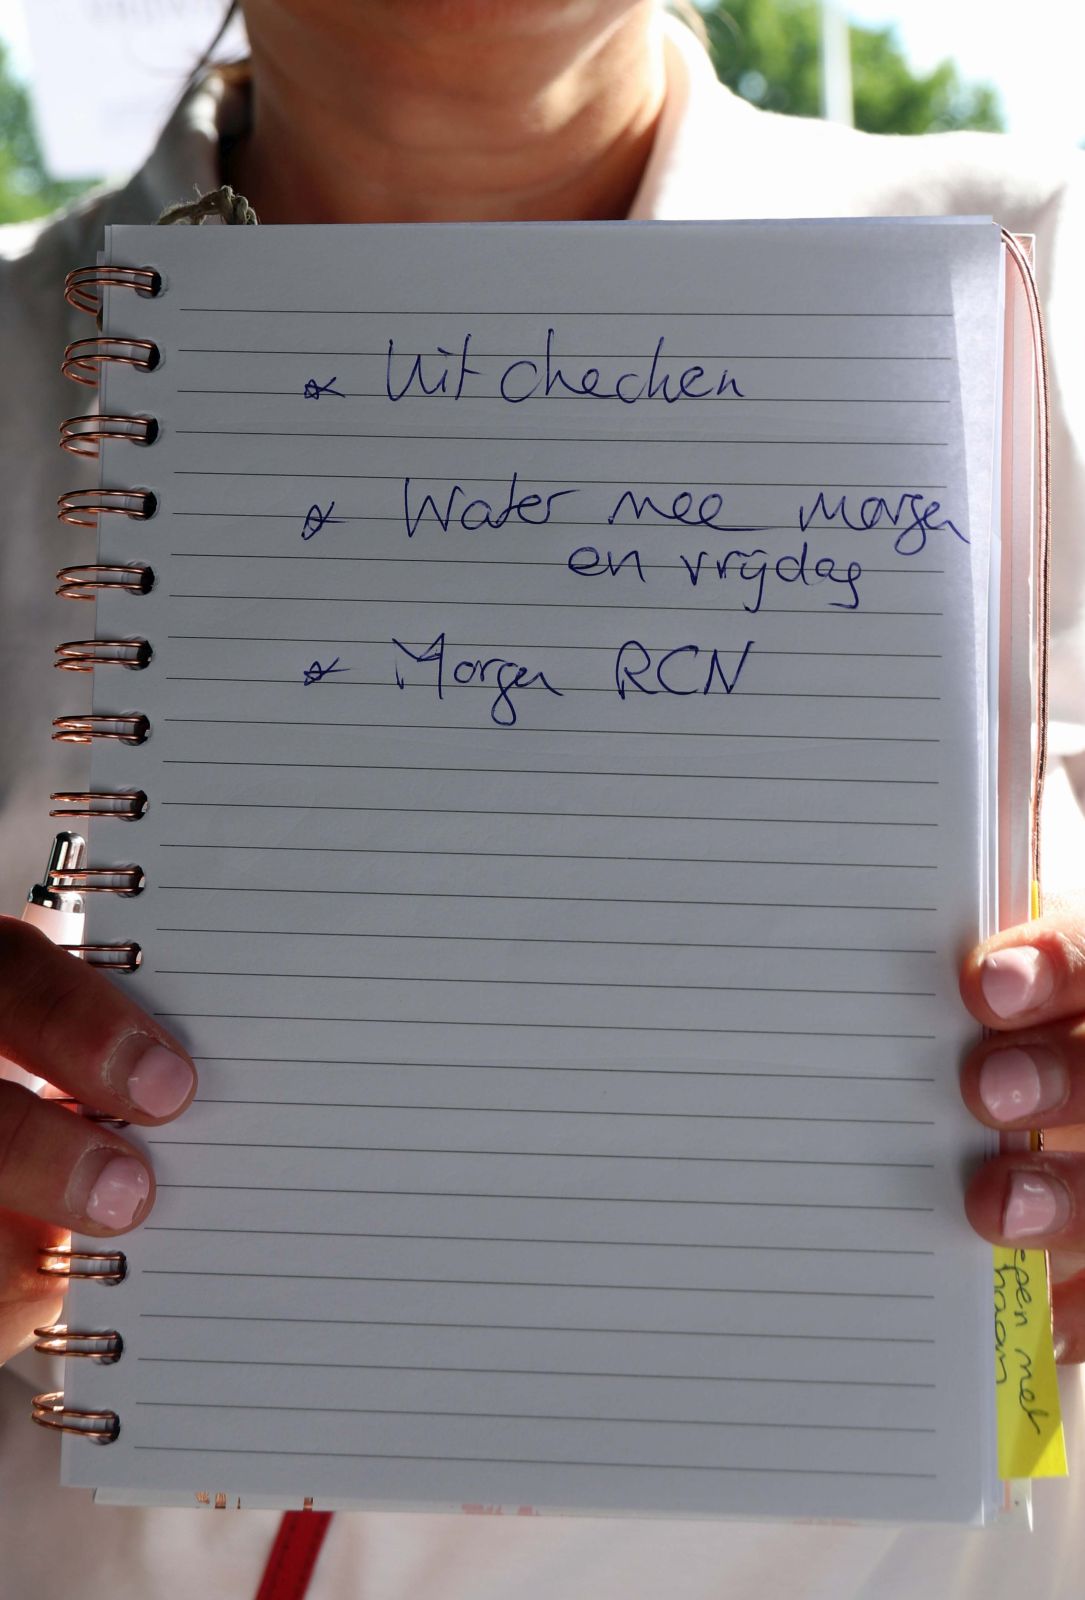 * Uit checken
* Water mee morgen
en vrijdag
* Morgen RCN
epen met